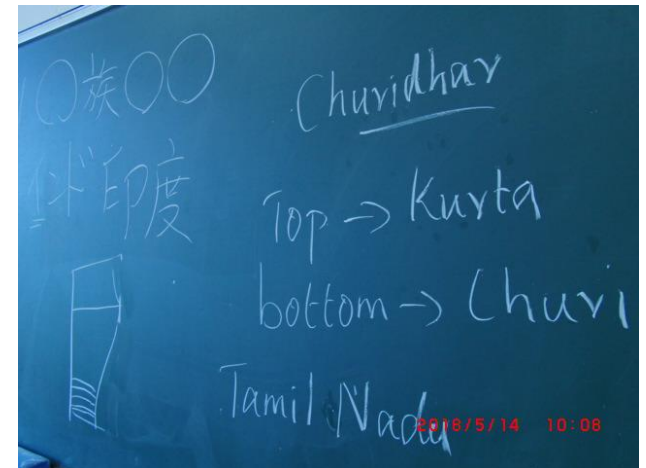 〇族〇〇
インド印度
Churidhar
Top → Kurta
bottom → Churi
Tamil Nadu
2018/5/14 10:08